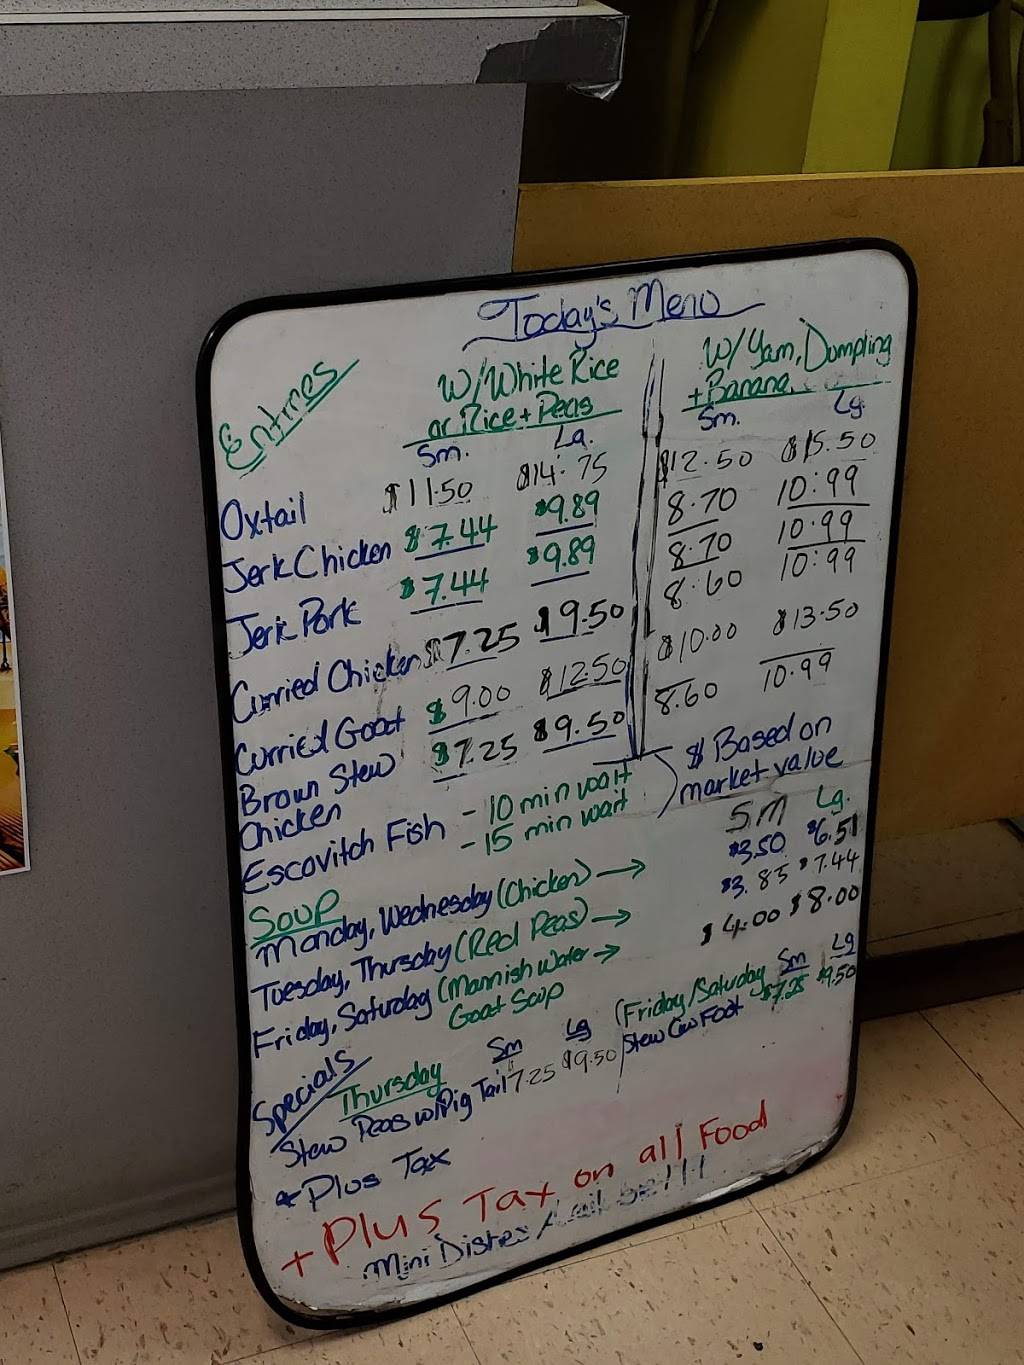 Today's Menu
Entrées
W/White Rice
or Rice + Peas
W/ Yam, Dumpling
+ Banana
Sm. Lg. Sm. Lg.
Oxtail $11.50 $14.75 $12.50 $15.50
Jerk Chicken $7.44 $9.89 8.70 10.99
Jerk Pork $7.44 $9.89 8.70 10.99
Curried Chicken $7.25 $9.50 8.60 10.99
Curried Goat $9.00 $12.50 $10.00 $13.50
Brown Stew $7.25 $9.50 8.60 10.99
Chicken
Escovitch Fish - 10 min wait
- 15 min wait
$ Based on
market value
Soup SM Lg.
Monday, Wednesday (Chicken) → $3.50 $6.51
Tuesday, Thursday (Red Peas) → $3.85 $7.44
Friday, Saturday (Mannish Water → $4.00 $8.00
Goat Soup
Specials
Thursday Sm Lg
Stew Peas w/Pig Tail 7.25 $9.50
(Friday/Saturday Sm Lg
Stew Cow Foot $7.25 $9.50
* Plus Tax
+ Plus Tax on all Food
Mini Dishes